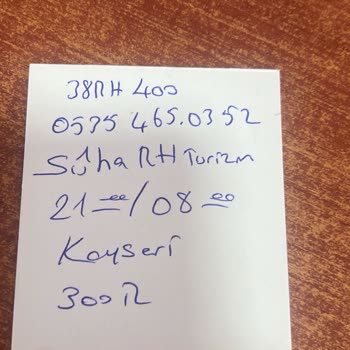 38RH 400
0535 465.0352
Süha RH Turizm
21 00 / 08 00
Kayseri
300 TL